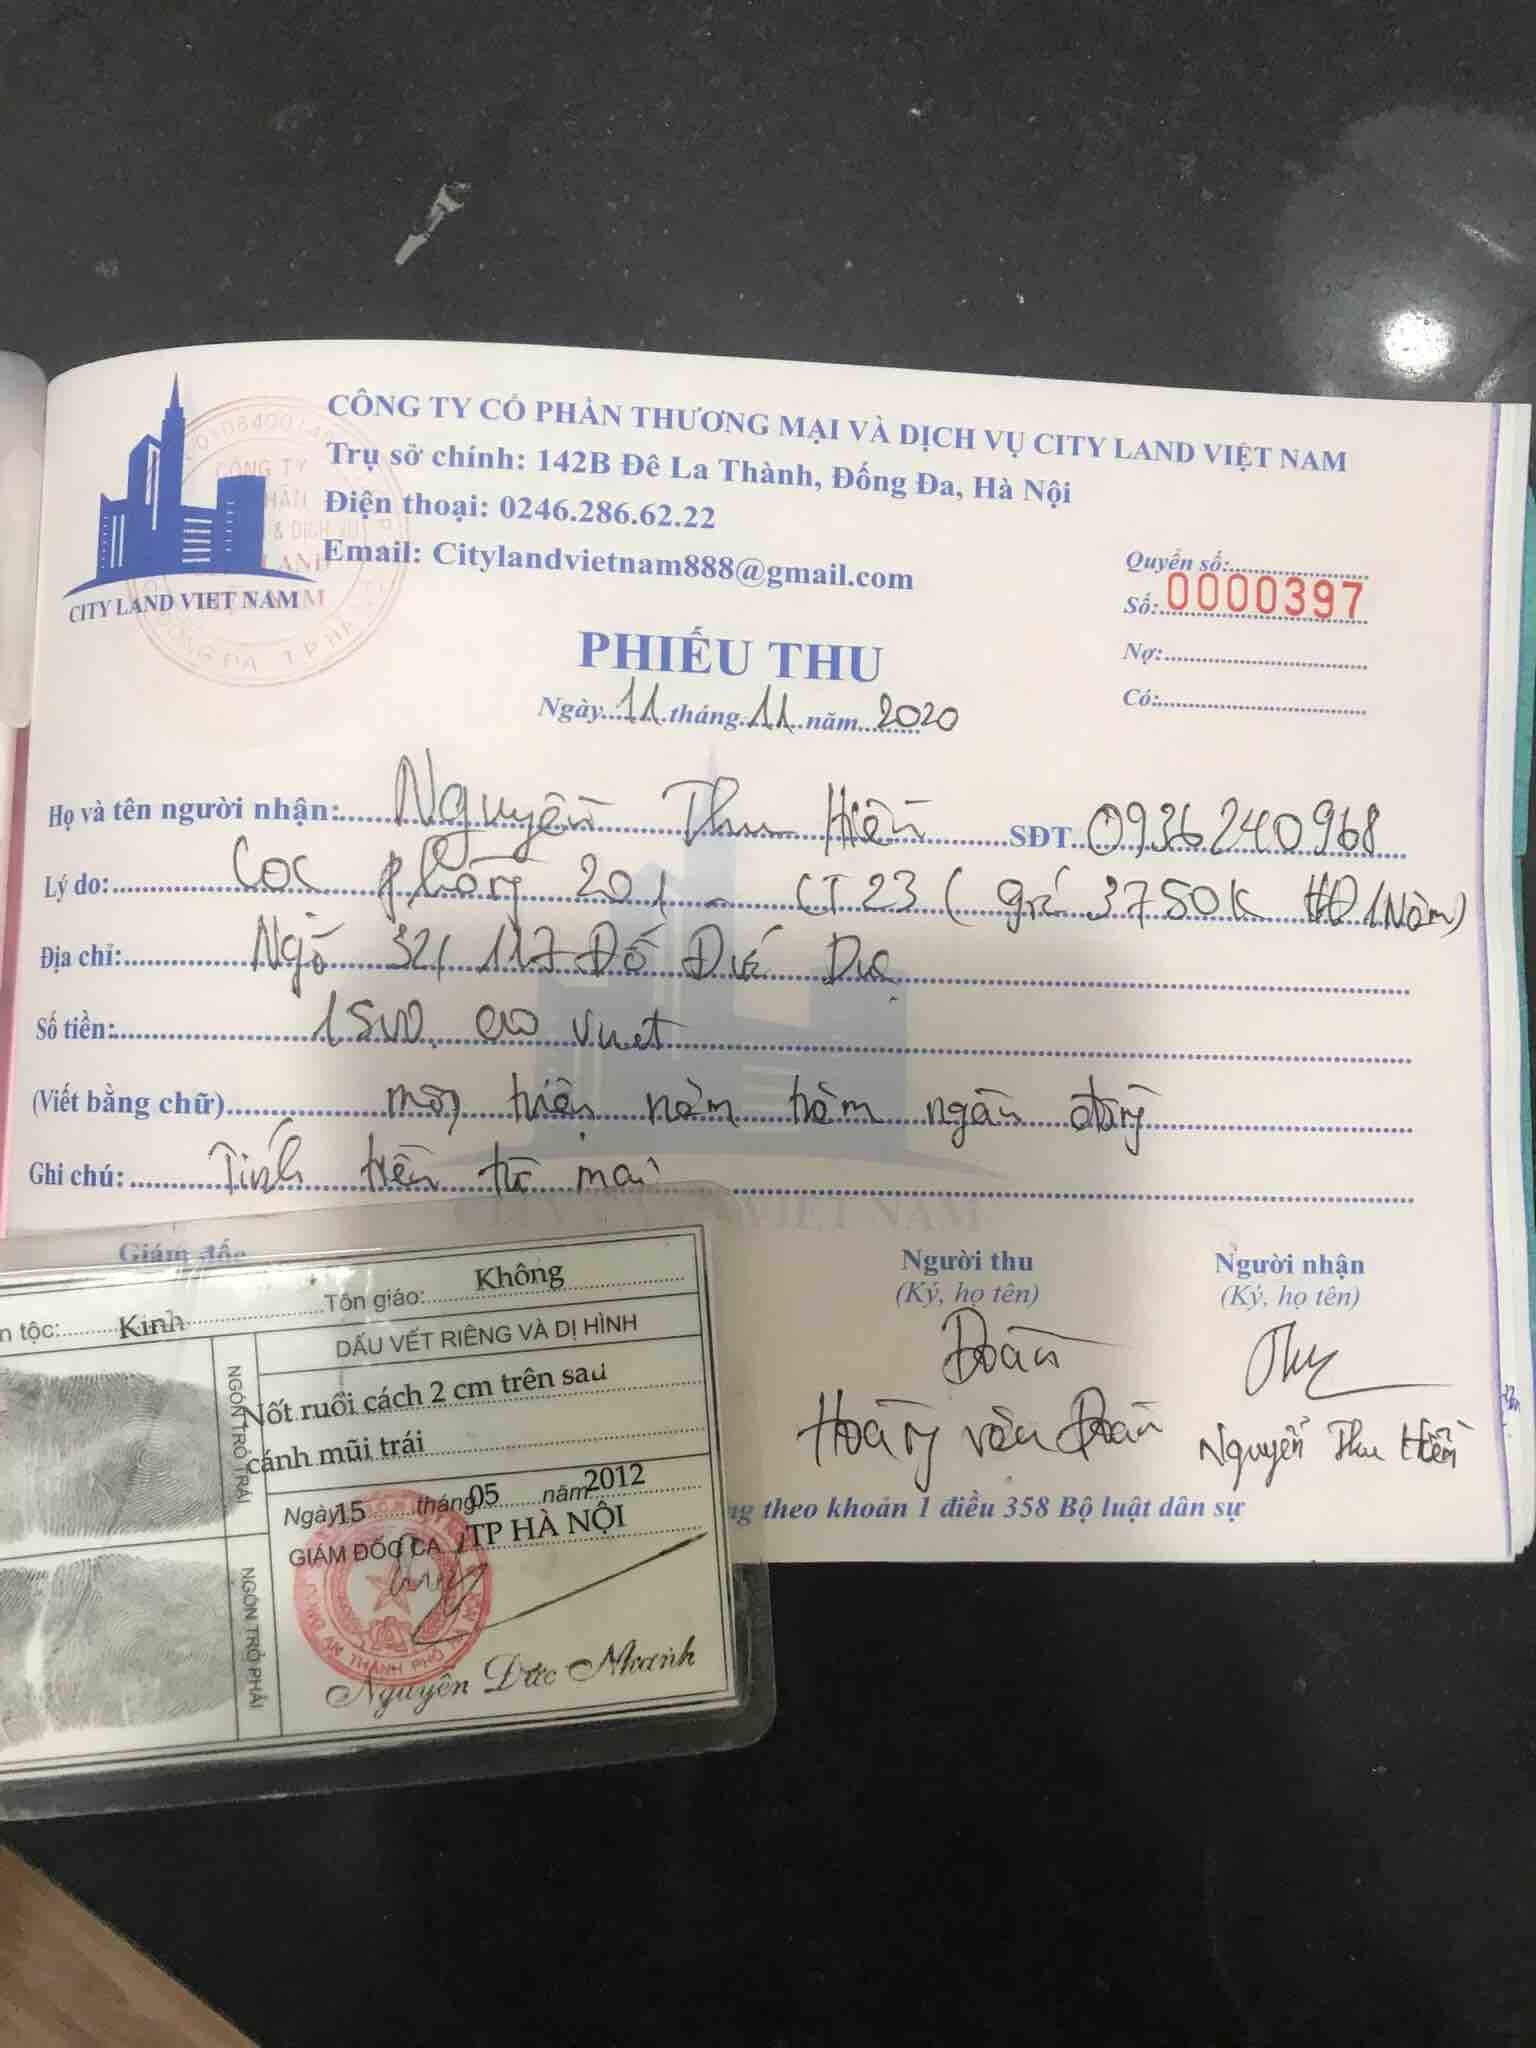 CÔNG TY CỔ PHẦN THƯƠNG MẠI VÀ DỊCH VỤ CITY LAND VIỆT NAM
Trụ sở chính: 142B Đê La Thành, Đống Đa, Hà Nội
Điện thoại: 0246.286.62.22
Email: Citylandvietnam888@gmail.com
CITY LAND VIET NAM
Quyển số:
Số: 0000397
Nợ:
Có:
PHIẾU THU
Ngày 11 tháng 11 năm 2020
Họ và tên người nhận: Nguyễn Thu Hiền SĐT 0936240968
Lý do: Cọc phòng 201 - CT23 (giá 3750K HĐ 1 Năm)
Địa chỉ: Ngõ 32/117 Đố Đức Dục
Số tiền:
(Viết bằng chữ) một triệu năm trăm ngàn đồng
Ghi chú: Tính tiền từ mai
Giám đốc
Người thu
(Ký, họ tên)
Đoàn
Hoàng văn Đoàn
Người nhận
(Ký, họ tên)
Nguyễn Thu Hiền
theo khoản 1 điều 358 Bộ luật dân sự
n tộc: Kinh Tôn giáo: Không
DẤU VẾT RIÊNG VÀ DỊ HÌNH
Nốt ruồi cách 2 cm trên sau
cánh mũi trái
NGÓN TRỎ TRÁI
Ngày 15 tháng 05 năm 2012
GIÁM ĐỐC CA TP HÀ NỘI
NGÓN TRỎ PHẢI
Nguyễn Đức Nhanh